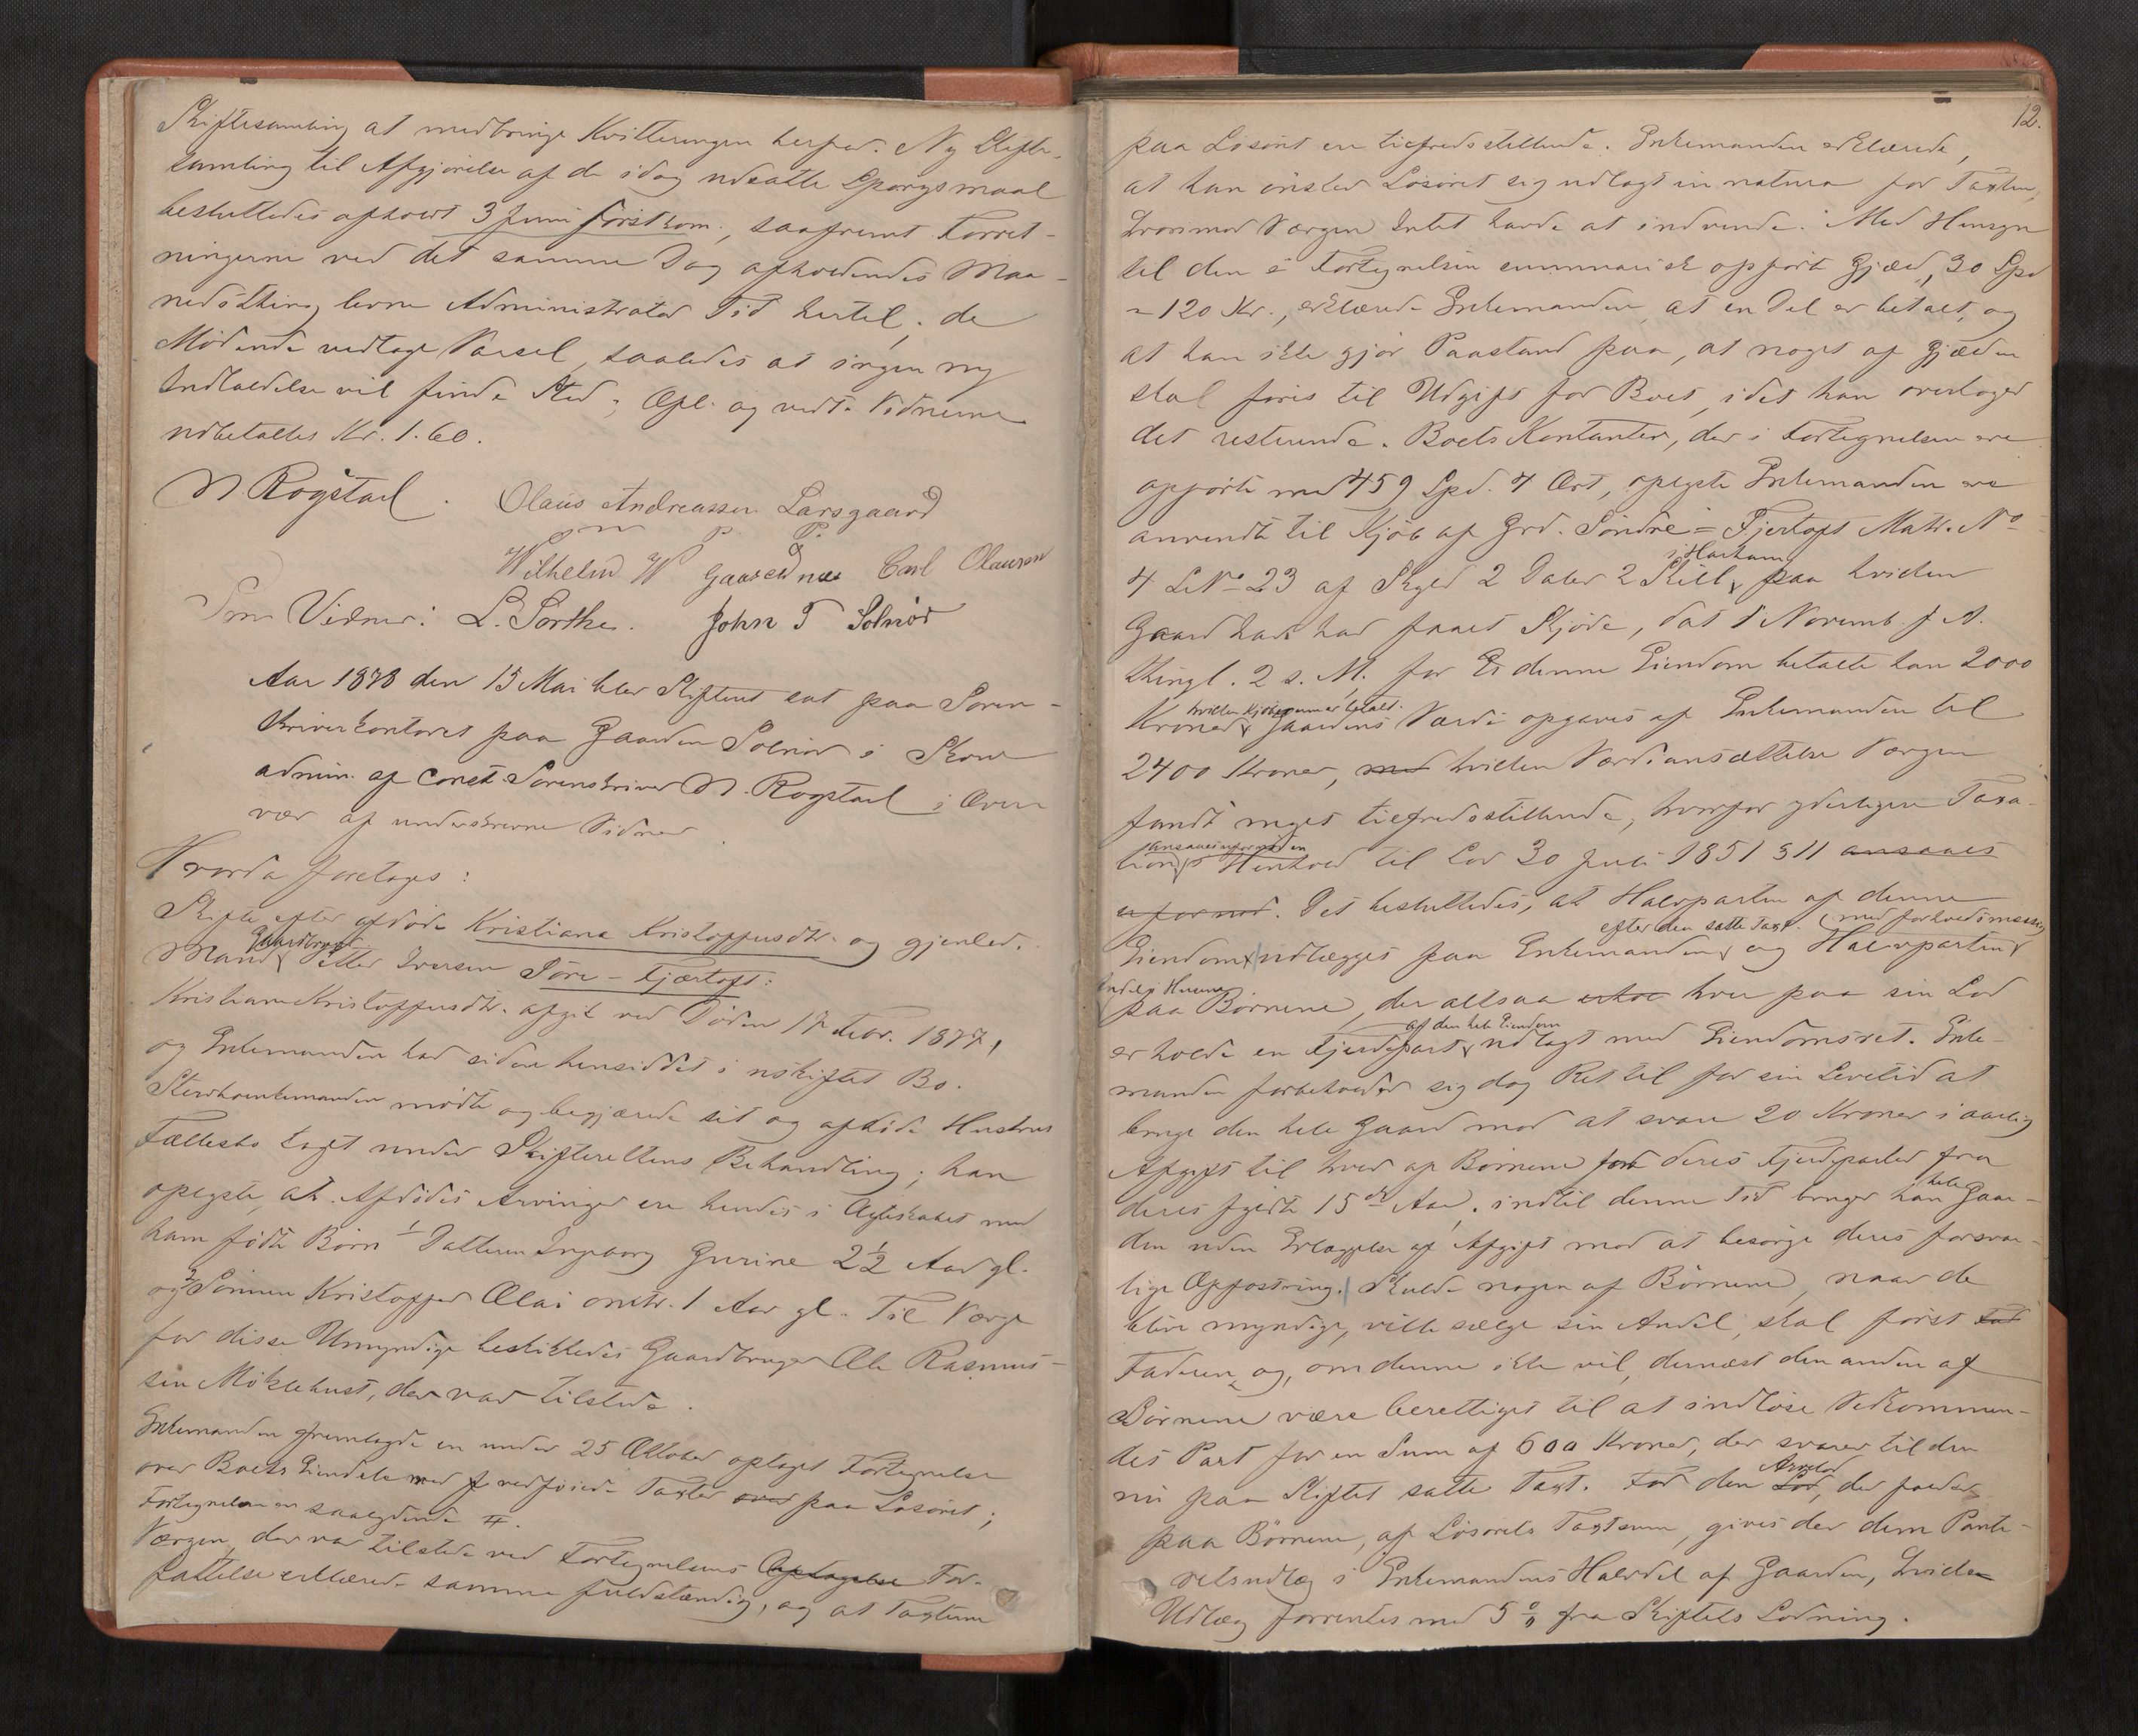 Skiftesamling at medbringe Kvitteringen herfor. Ny Skifte-
samling til Afgjörelse af de idag udsatte Spörgsmaal
besluttedes afholdt 3 Juni förstkom., saafremt Forret-
ningerne ved det samme Dag afholdendes Maa-
nedsthing levne Administrator Tid hertil; de
Mödende vedtoge Varsel, saaledes at ingen ny
Indkaldelse vil finde Sted; Opl. og vedt. Vidnerne
udbetaltes Kr. 1.60.
N. Rogstad. Olaus Andreassen Larsgaard
m p P.
Wilhelm W Gaaseidnes Carl Olausen
Som Vidner: L. Sorthe. John T Solnör
Aar 1878 den 15 Mai blev Skifteret sat paa Soren-
skriverkontoret paa Gaarden Solnör i Skou
admin. af const. Sorenskriver N. Rogstad i Over
vær af underskrevne Vidner
Hvorda foretoges:
Skifte efter afdöde Kristiane Kristoffersdtr. og gjenlev.
Gaardbruger
Mand Petter Iversen Söre-Fjærtoft:
Kristiane Kristoffersdtr. afgik ved Döden 17 Febr. 1877,
og Enkemanden har siden hensiddet i uskiftet Bo.
Stervboenkemanden mödte og begjærede sit og afdöde Hustrus
Fællesbo taget under Skifterettens Behandling; han
oplyste, at Afdödes Arvinger ere hendes i Ægteskabet med
ham födte Börn 1/ Datteren Ingeborg Gurine 2½ Aar gl.
og 2/ Sönnen Kristoffer Olai omtr. 1 Aar gl. Til Værge
for disse Umyndige beskikkedes Gaardbruger Ole Rasmus-
sen Möklehust, der var tilstede.
Enkemanden fremlagde en under 25 Oktober optaget Fortegnelse
over Boets Eiendele med vedföiede Taxter over paa Lösöret;
Fortegnelsen er saalydende #.
Værgen, der var tilstede ved Fortegnelsens Optagelse For-
fattelse erklærede samme fuldstændig, og at Taxterne
12.
paa Lösöret ere tilfredsstillende. Enkemanden erklærede,
at han önsker Lösöret sig udlagt in natura for Taxten,
hvorimod Værgen Intet havde at indvende. Med Hensyn
til den i Fortegnelsen summarisk opförte Gjæld, 30 Spd
= 120 Kr., erklærede Enkemanden, at en Del er betalt, og
at han ikke gjör Paastand paa, at noget af Gjælden
skal föres til Udgift for Boet, idet han overtager
det resterende. Boets Kontanter, der i Fortegnelsen ere
opförte med 459 Spd. 4 Ort, oplyste Enkemanden ere
anvendt til Kjöb af Grd. Söndre = Fjertoft Matr. No
i Harham
4 LNo 23 af Skyld 2 Daler 2 Skill paa hvilken
Gaard han har faaet Skjöde, dat 1 Novemb. f. A.
thingl. 2 s. M. for Es denne Eiendom betalte han 2000
hvilken Kjöbesum er betalt.
Kroner Gaardens Værdi opgaves af Enkemanden til
2400 Kroner, med hvilken Værdiansættelse Værgen
fandt meget tilfredsstillende, hvorfor yderligere Taxa-
ansaaes ufornöden
tion i Henhold til Lov 30 Juli 1851 § 11 ansaaes
ufornöd. Det besluttedes, at Halvparten af denne
efter den satte Taxt. (med forholdsmæssig
Eiendom udlægges paa Enkemanden og Halvparten
paa Börnene, der altsaa erhol hver paa sin Lod
af den hele Eiendom
erholde en Fjerdepart udlagt med Eiendomsret. Enke-
manden forbeholder sig dog Ret til for sin Levetid at
bruge den hele Gaard mod at svare 20 Kroner i aarlig
Afgift til hver af Börnene for deres Fjerdeparter fra
deres fyldte 15de Aar; indtil denne Tid bruger han hele Gaar-
den uden Erlæggelse af Afgift mod at besörge deres forsvar-
lige Opfostring. Skulde nogen af Börnene, naar de
blive myndige, ville sælge sin Andel, skal först Fad
Faderen, og, om denne ikke vil, dernæst den anden af
Börnene være berettiget til at indlöse Vedkommen-
des Part for en Sum af 600 Kroner, der svarer til den
Arvelod
nu paa Skiftet satte Taxt. For den Lod, der falder
paa Börnene, af Lösörets Taxtsum, gives der dem Pante-
retsudlæg i Enkemandens Halvdel af Gaarden, hvilken
Udlæg forrentes med 5 % fra Skiftets Slutning.